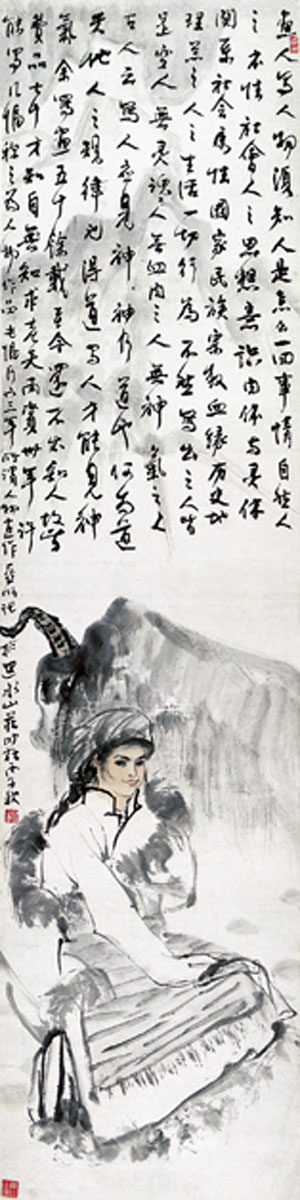 画人写人物须知人是怎么一回事情自然人
之本性社会人之思想意识由体与灵体
关系社会属性国家民族宗教血缘历史地
理之人之生活一切行为不然写出之人皆
是空人无灵魂之人无血肉之人无神气之人
古人云写人应见神神行道也何为道
天地人之规律也得道写人才能见神
气余写画五十余载至今还不知人故常
费品七十才知自无知求老天再赏卅年许
能写几幅称之为人物作品